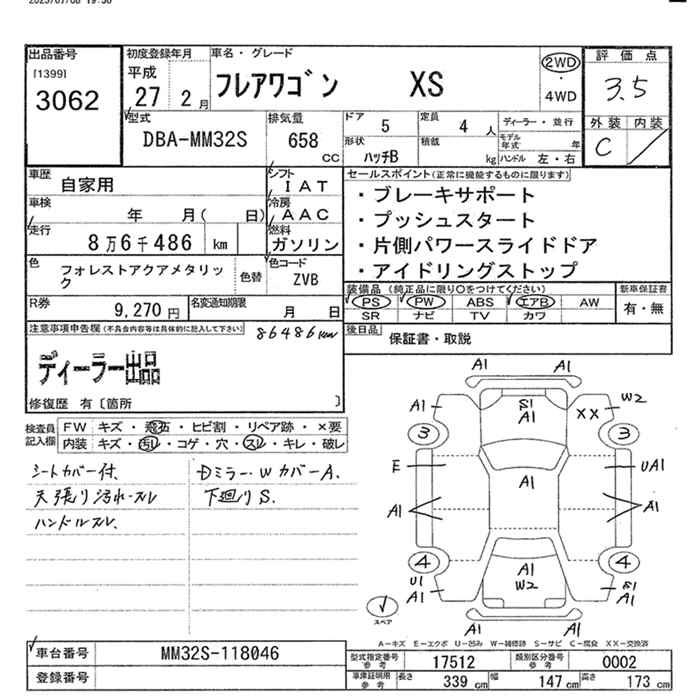 出品番号
[1399]
3062
初度登録年月
平成
27 2 月
車名・グレード
フレアワゴン XS
2WD
・
4WD
評価点
3.5
外装 内装
C
型式
DBA-MM32S
排気量
658
CC
ドア 5
定員 4 人
形状
ハッチB
積載
kg
ディーラー・並行
モデル年式 年
ハンドル 左・右
車歴
自家用
シフト
IAT
車検
年 月( 日)
冷房
AAC
走行
8万6千486 km
燃料
ガソリン
色
フォレストアクアメタリック
色替
色コード
ZVB
R券
9,270 円
名変通知期限
月 日
セールスポイント(正常に機能するものに限ります)
・ブレーキサポート
・プッシュスタート
・片側パワースライドドア
・アイドリングストップ
装備品(純正品に限り〇をつけてください)
PS PW ABS エアB AW
SR ナビ TV カワ
新車保証書
有・無
後日品
保証書・取説
注意事項申告欄(不具合内容等は具体的に記入して下さい)
86486km
ディーラー出品
修復歴 有〔箇所 〕
検査員記入欄
FW キズ・飛石・ヒビ割・リペア跡・×要
内装 キズ・汚れ・コゲ・穴・スレ・キレ・破レ
シートカバー付.
天張り汚れ・スレ
ハンドルスレ.
Dミラー・WカバーA.
下廻りS.
A1 A1
A1
S1
A1
XX
W2
A1
3 3
E
A1
UA1
A1
A1
4 4
U1
A1
A1
W2
S1
A1
A1 A1
スペア
A－キズ E－エクボ U－凹み W－補修跡 S－サビ C－腐食 XX－交換済
車台番号
MM32S-118046
登録番号
型式指定番号
参考
17512
類別区分番号
参考
0002
車庫証明用
参考
長さ 339 cm
幅 147 cm
高さ 173 cm